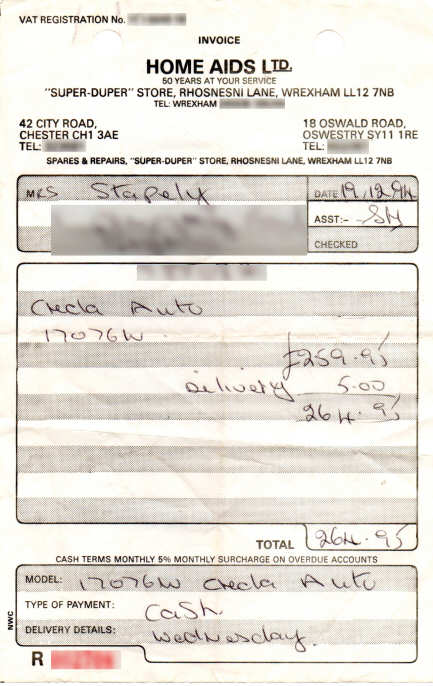 VAT REGISTRATION No.
INVOICE
HOME AIDS LTD.
50 YEARS AT YOUR SERVICE
"SUPER-DUPER" STORE, RHOSNESNI LANE, WREXHAM LL12 7NB
TEL: WREXHAM
42 CITY ROAD, 18 OSWALD ROAD,
CHESTER CH1 3AE OSWESTRY SY11 1RE
TEL: TEL:
SPARES & REPAIRS, "SUPER-DUPER" STORE, RHOSNESNI LANE, WREXHAM LL12 7NB
MRS Stapely DATE 19.12.94
ASST:- SM
CHECKED
Creda Auto
17076W
£259.95
Delivery 5.00
264.95
TOTAL 264.95
CASH TERMS MONTHLY 5% MONTHLY SURCHARGE ON OVERDUE ACCOUNTS
MODEL: 17076W Creda Auto
TYPE OF PAYMENT: Cash.
DELIVERY DETAILS: Wednesday.
NWC
R